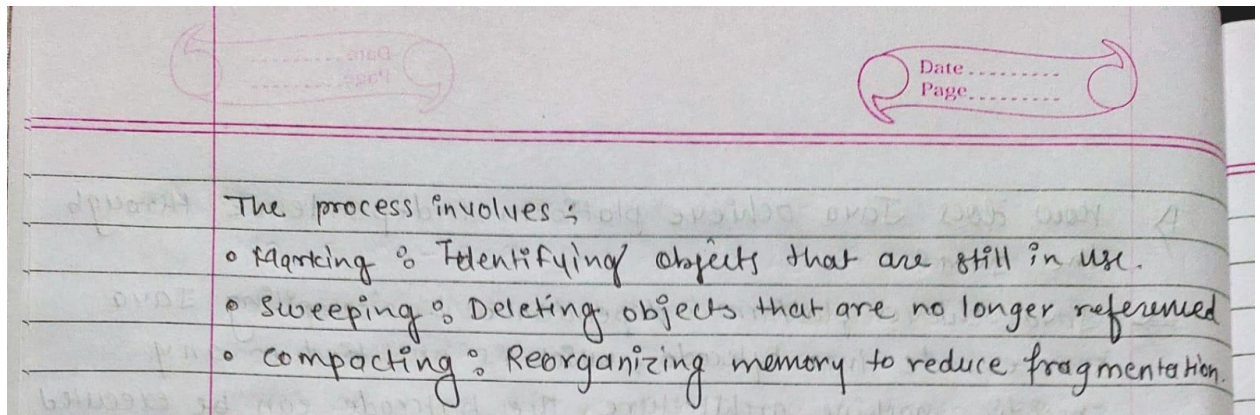 Date.........
Page.........
The process involves :
• Marking : Identifying objects that are still in use.
• Sweeping : Deleting objects that are no longer referenced
• compacting : Reorganizing memory to reduce fragmentation.